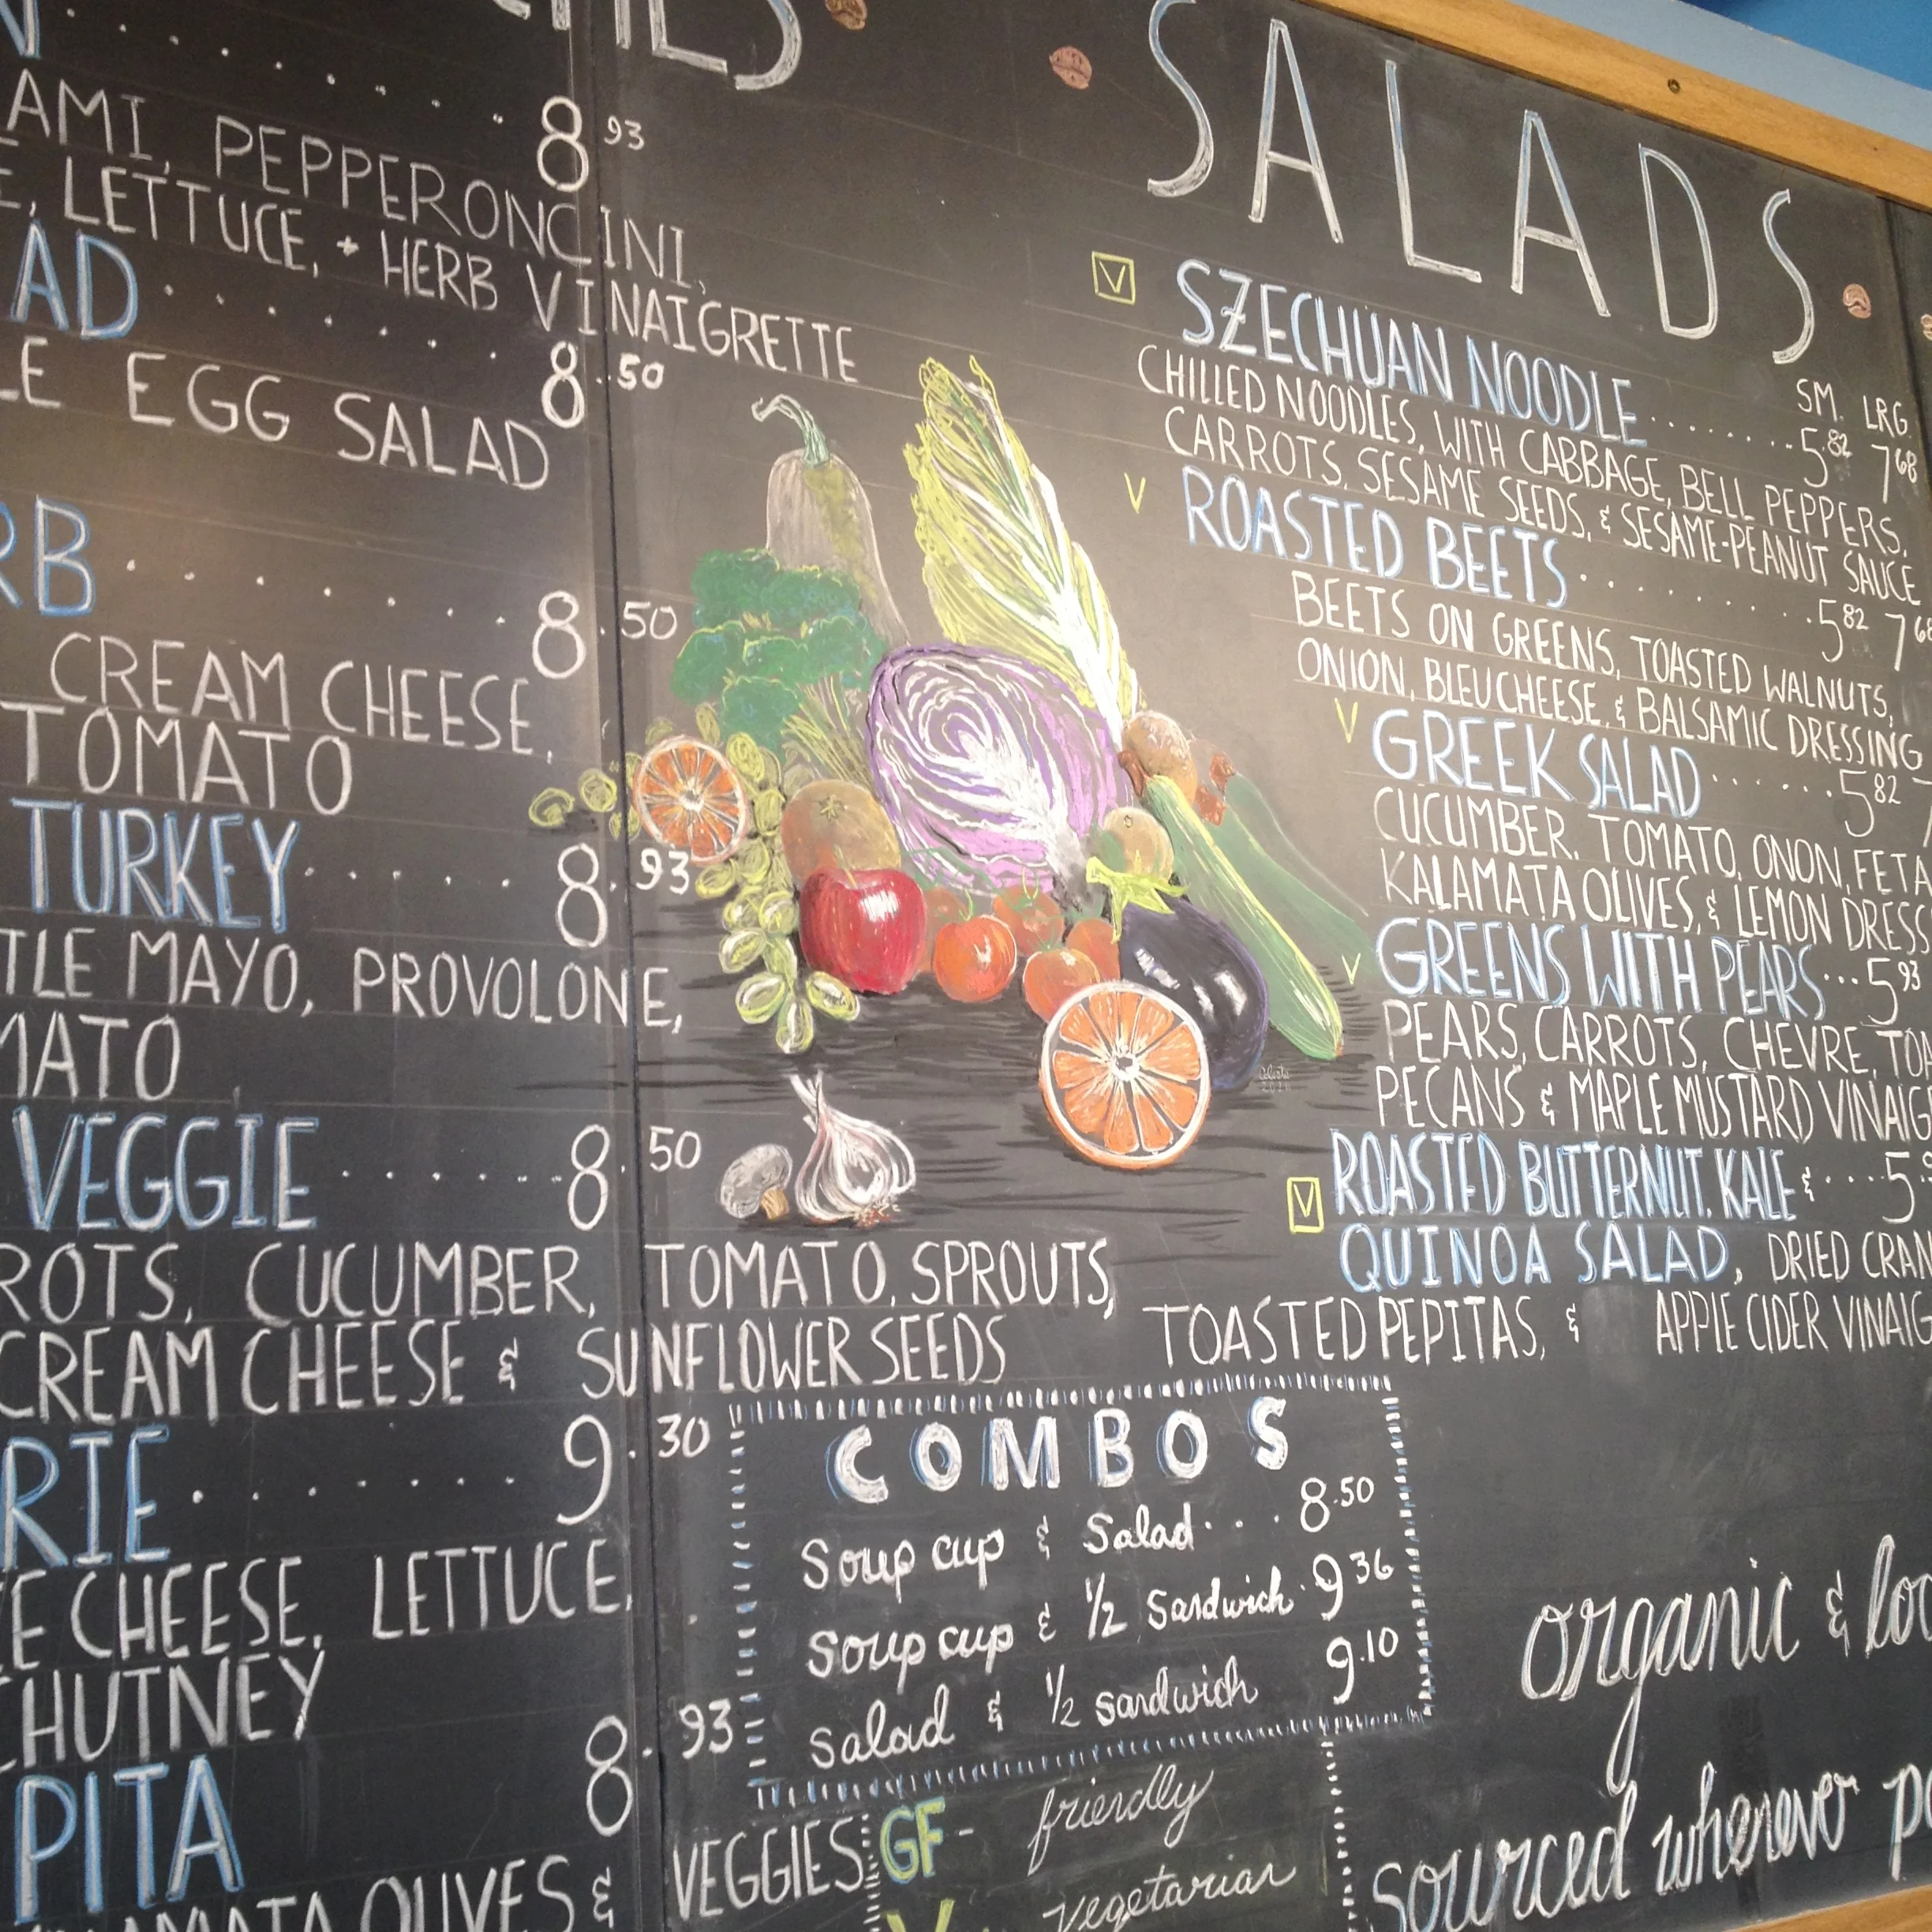 8 93
PEPPERONCINI,
LETTUCE, + HERB VINAIGRETTE
8.50
EGG SALAD
8.50
CREAM CHEESE,
TOMATO
TURKEY . . . . . . 8.93
MAYO, PROVOLONE,
VEGGIE . . . . . . 8.50
CUCUMBER, TOMATO, SPROUTS,
CREAM CHEESE & SUNFLOWER SEEDS
9.30
CHEESE, LETTUCE,
8.93
PITA
OLIVES & VEGGIES
SALADS
SM. LRG
V SZECHUAN NOODLE . . . . . . . . 5 82 7 68
CHILLED NOODLES, WITH CABBAGE, BELL PEPPERS,
CARROTS, SESAME SEEDS, & SESAME-PEANUT SAUCE
V ROASTED BEETS . . . . . . . . . . 5 82 7 68
BEETS ON GREENS, TOASTED WALNUTS,
ONION, BLEUCHEESE, & BALSAMIC DRESSING
V GREEK SALAD . . . . . . 5 82
CUCUMBER, TOMATO, ONON, FETA
KALAMATA OLIVES, & LEMON
V GREENS WITH PEARS . . . 5 93
PEARS, CARROTS, CHEVRE,
PECANS & MAPLE MUSTARD
V ROASTED BUTTERNUT, KALE &
QUINOA SALAD, DRIED
TOASTED PEPITAS, & APPLE CIDER
COMBOS
Soup cup & Salad . . . . 8.50
Soup cup & 1/2 Sandwich . 9 36
Salad & 1/2 sandwich 9.10
GF - friendly
V vegetarian
organic &
sourced wherever